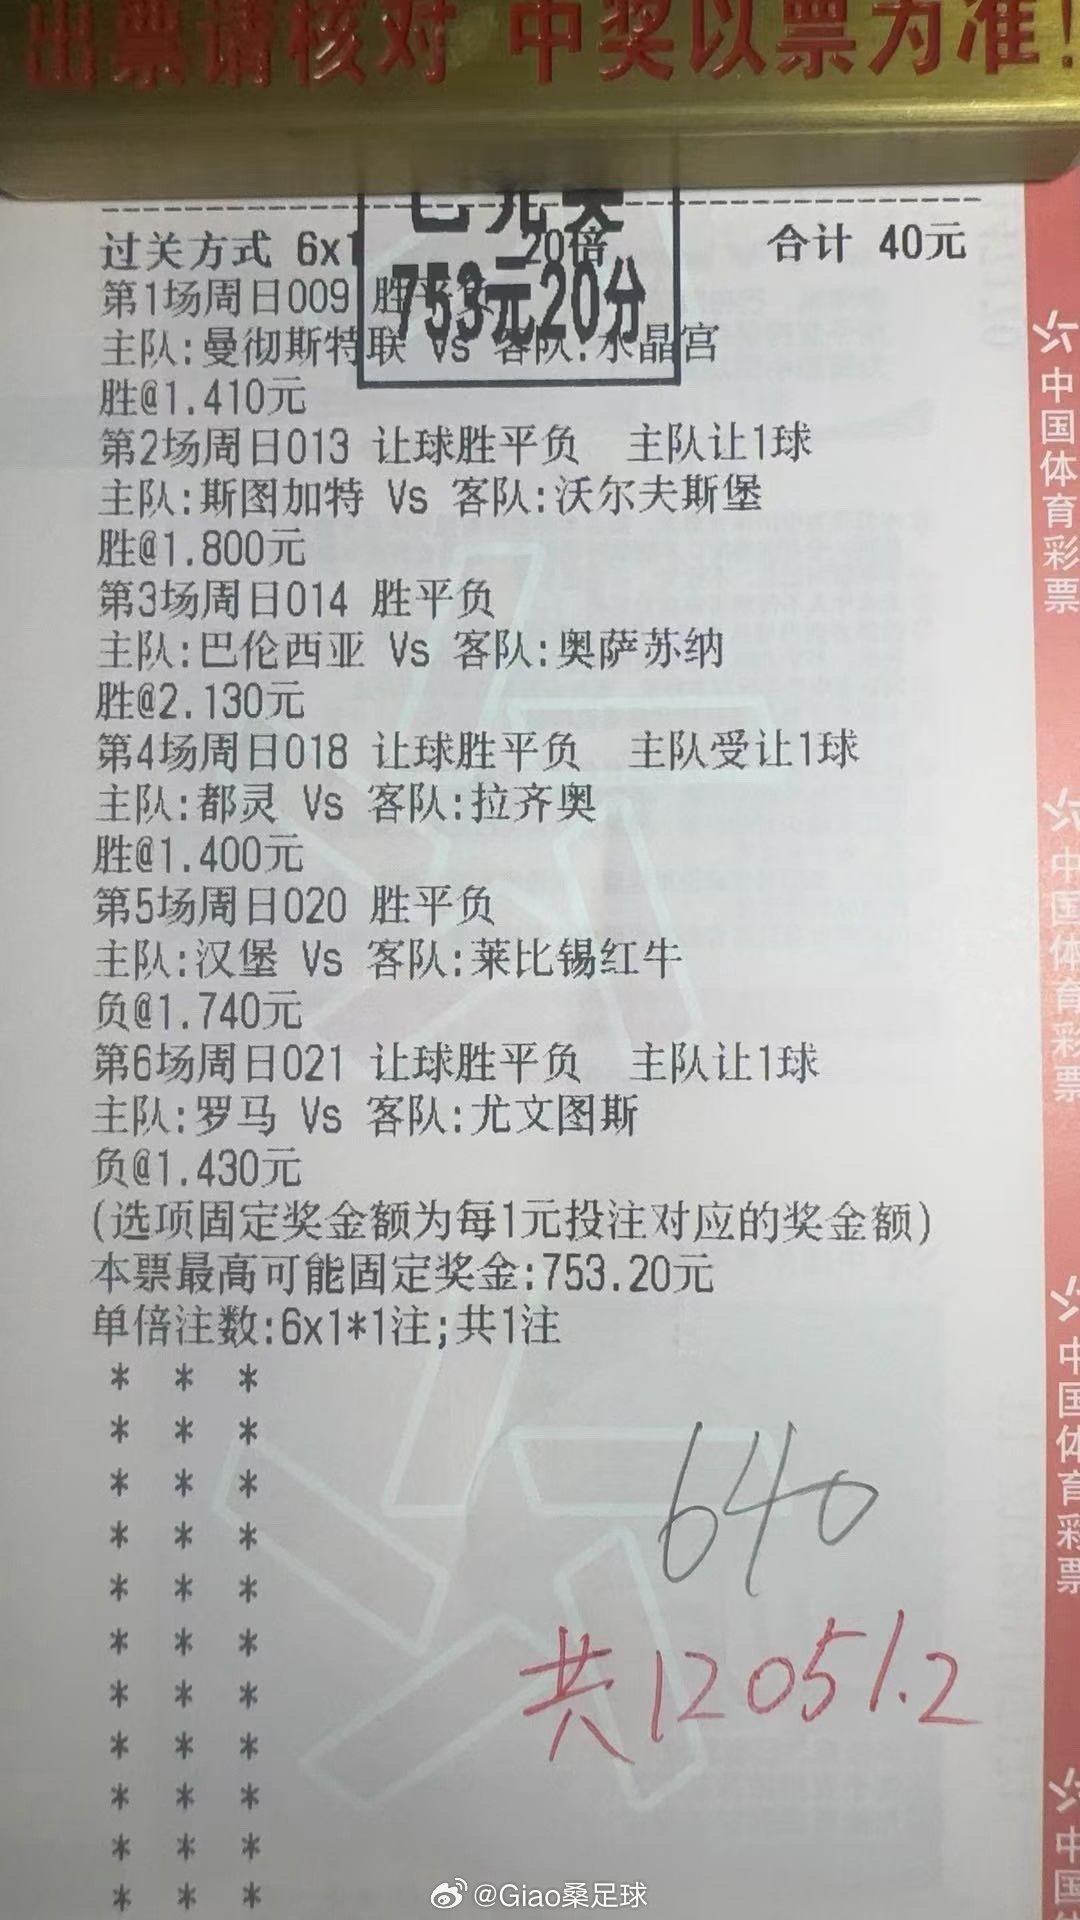 出票请核对 中奖以票为准!
已兑奖
753元20分
过关方式 6x1 20倍 合计 40元
第1场周日009 胜平负
主队:曼彻斯特联 Vs 客队:水晶宫
胜@1.410元
第2场周日013 让球胜平负 主队让1球
主队:斯图加特 Vs 客队:沃尔夫斯堡
胜@1.800元
第3场周日014 胜平负
主队:巴伦西亚 Vs 客队:奥萨苏纳
胜@2.130元
第4场周日018 让球胜平负 主队受让1球
主队:都灵 Vs 客队:拉齐奥
胜@1.400元
第5场周日020 胜平负
主队:汉堡 Vs 客队:莱比锡红牛
负@1.740元
第6场周日021 让球胜平负 主队让1球
主队:罗马 Vs 客队:尤文图斯
负@1.430元
(选项固定奖金额为每1元投注对应的奖金额)
本票最高可能固定奖金:753.20元
单倍注数:6x1*1注;共1注
* * *
* * *
* * *
* * *
* * *
* * *
* * *
* * *
* * *
* * *
* * *
640
共12051.2
中国体育彩票
中国体育彩票
中国体育彩票
中国
@Giao桑足球